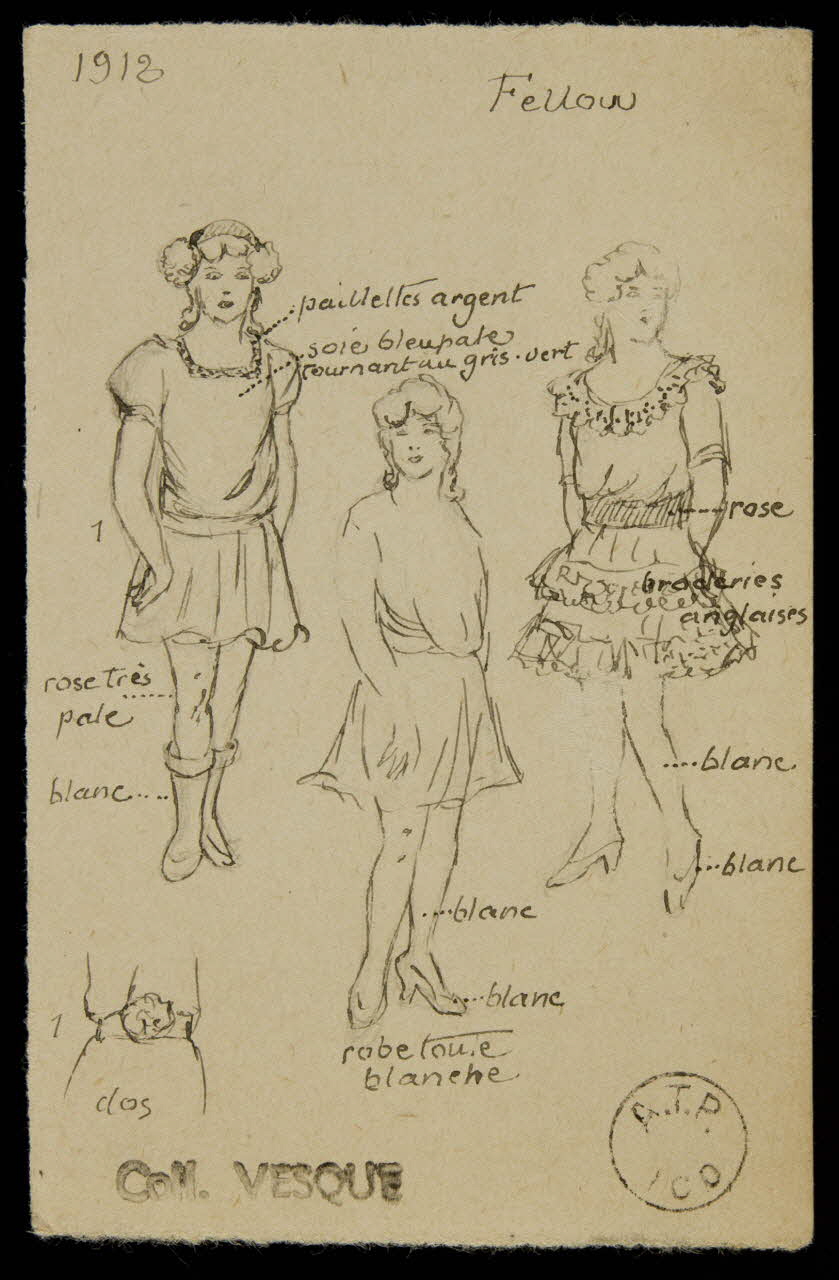 1912
Fellow
paillettes argent
soie bleu pale
tournant au gris-vert
1
rose
broderies
anglaises
rose très
pale
blanc
blanc
blanc
blanc
blanc
robe toute
blanche
1
dos
Coll. VESQUE
A.T.P.
ICO